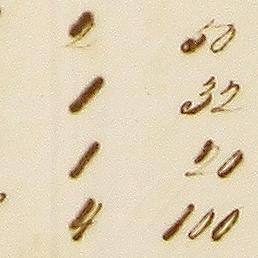 2 50
1 32
1 20
4 100